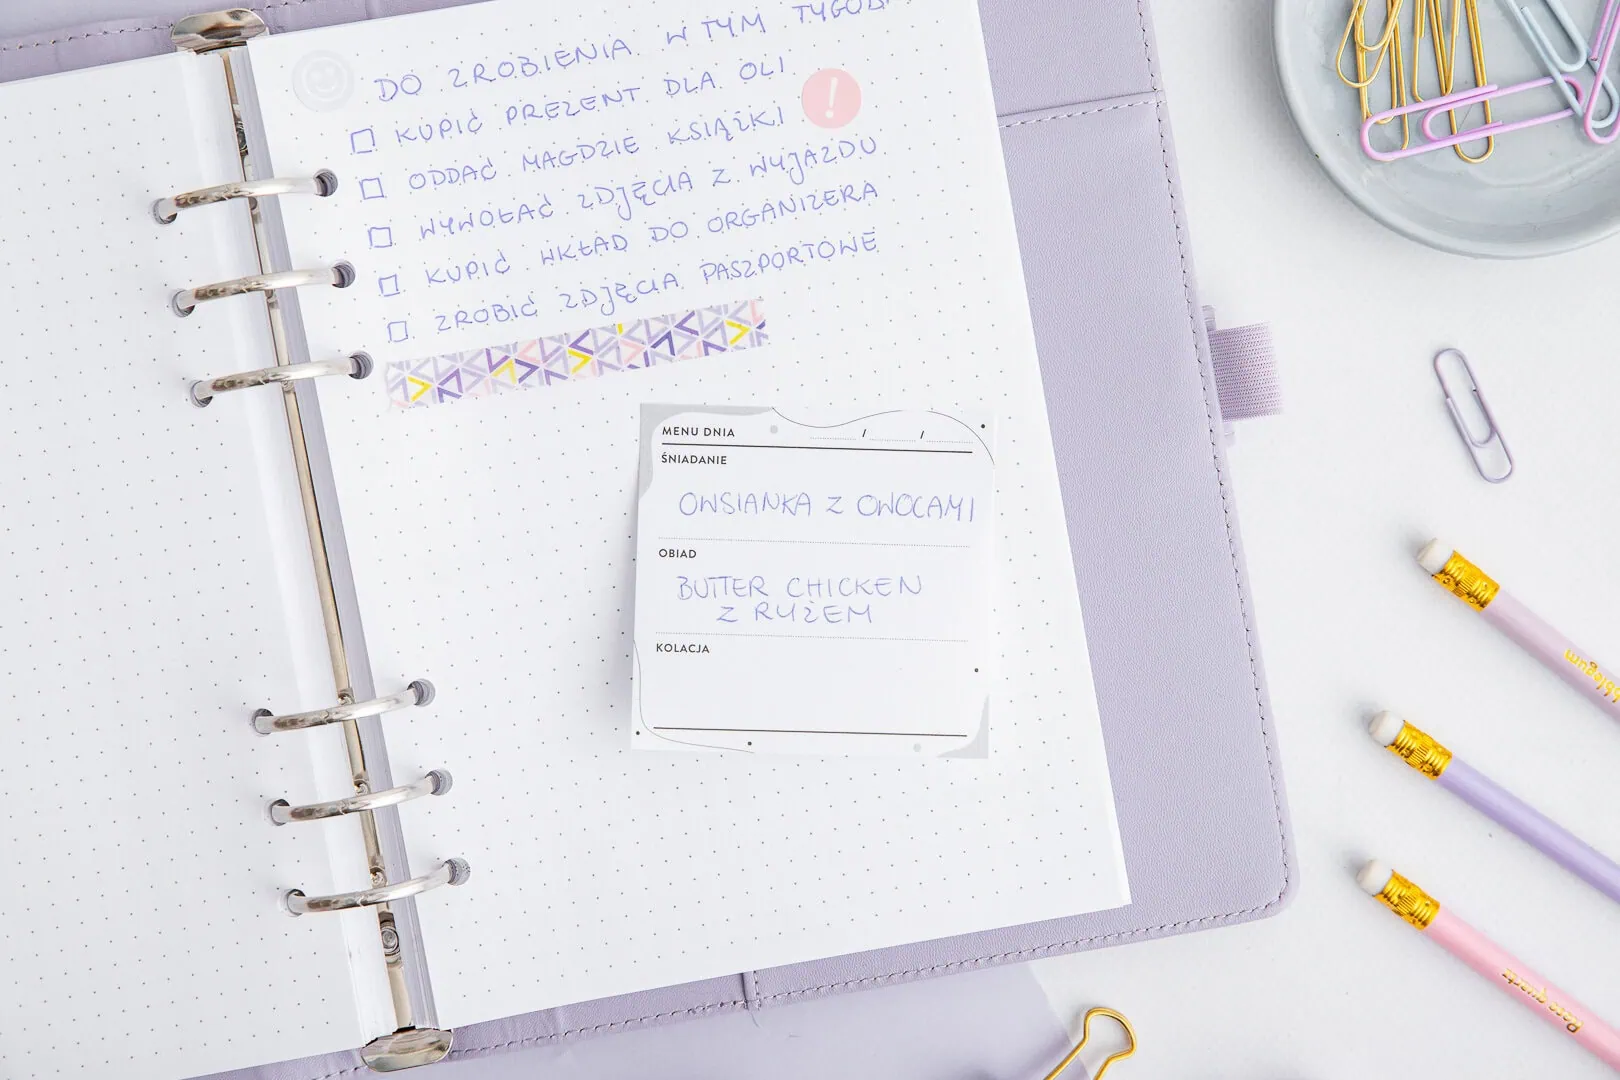 DO ZROBIENIA W TYM TYGOD
KUPIĆ PREZENT DLA OLI
ODDAĆ MAGDZIE KSIĄŻKI !
WYWOŁAĆ ZDJĘCIA Z WYJAZDU
KUPIĆ WKŁAD DO ORGANIZERA
ZROBIĆ ZDJĘCIA PASZPORTOWE
MENU DNIA / /
ŚNIADANIE
OWSIANKA Z OWOCAMI
OBIAD
BUTTER CHICKEN
Z RYŻEM
KOLACJA
bblegum
Rose quartz